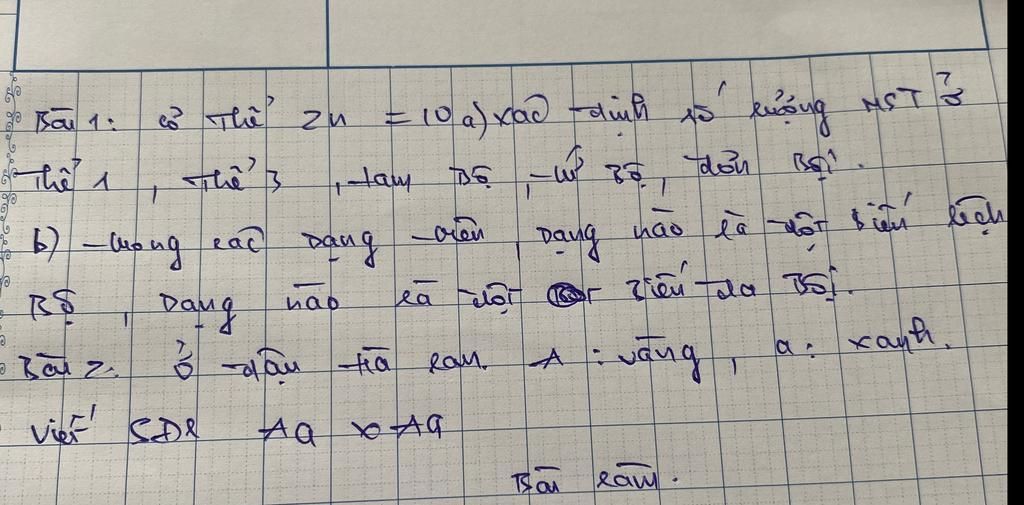 Bài 1: có thể 2n = 10 a) xác định số lượng NST ở
thể 1, thể 3, tam bộ, tứ bộ, đơn bội.
b) trong các dạng trên, dạng nào là đột biến lệch
Bộ, Dạng nào là đột biến đa Bội.
Bài 2: ở đậu Hà Lan. A: vàng, a: xanh.
Viết SĐL Aa x Aa
Bài làm.